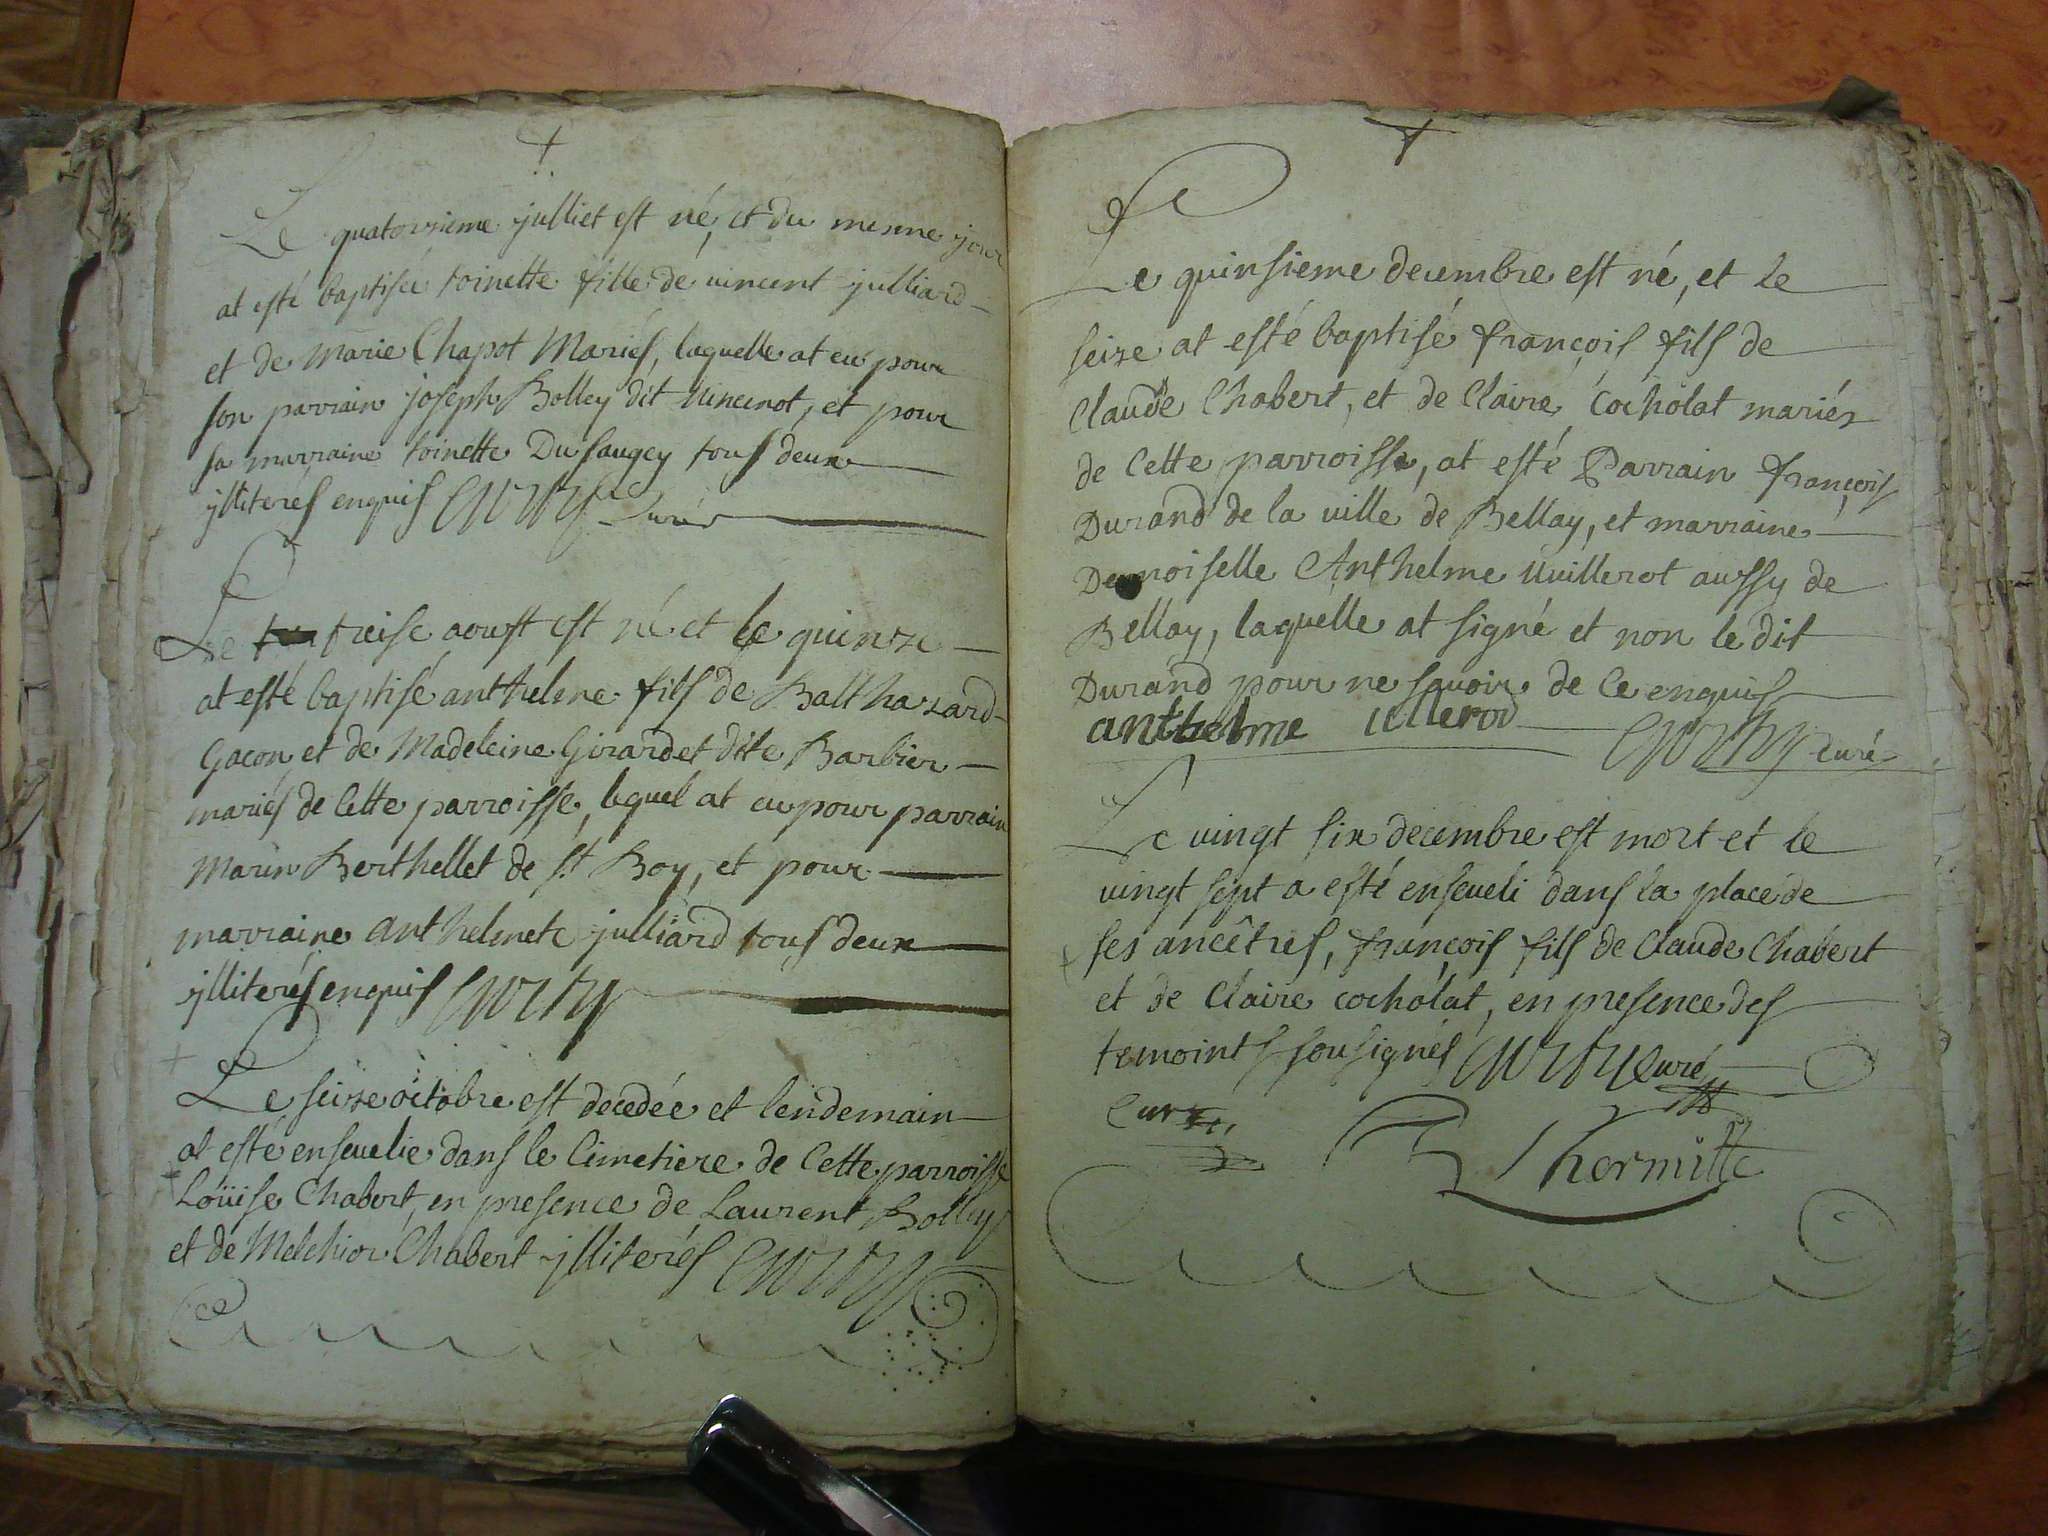 Le quatorsieme julliet est né, et du mesme jour
at esté baptisée toinette fille de vincent julliard
et de Marie Chapot Mariés, laquelle at eu pour
son parrain joseph Bolley dit Vincenot, et pour
sa marraine toinette Dusaugey tous deux
jlliterés enquis curé
Le treise aoust est né et le quinze
at esté baptisé anthelme fils de Balthazard
Gacon et de Madeleine Girardet dite Barbier
mariés de Cette parroisse, lequel at eu pour parrain
Marin Berthellet de st Boy, et pour
marraine anthelmete julliard tous deux
jlliterés enquis
Le seize octobre est decedée et lendemain
at esté ensevelie dans le Cimetiere de Cette parroisse
Loüise Chabert, en presence de Laurent Bolley
et de Melchior Chabert jlliterés
Le quinsieme decembre est né, et le
seize at esté baptisé françois fils de
Claude Chabert, et de Claire Cochôlat mariéz
de Cette parroisse, at esté Parrain françois
Durand de la ville de Bellay, et marraine
Demoiselle Anthelme Vuillerot aussy de
Bellay, laquelle at signé et non le dit
Durand pour ne savoir de Ce enquis
anthelme uillerod curé
Le vingt six decembre est mort et le
vingt sept a esté enseveli dans la place de
ses ancêtres, françois fils de Claude Chabert
et de Claire cochôlat, en presence des
temoints sousignés curé
Lhermitte